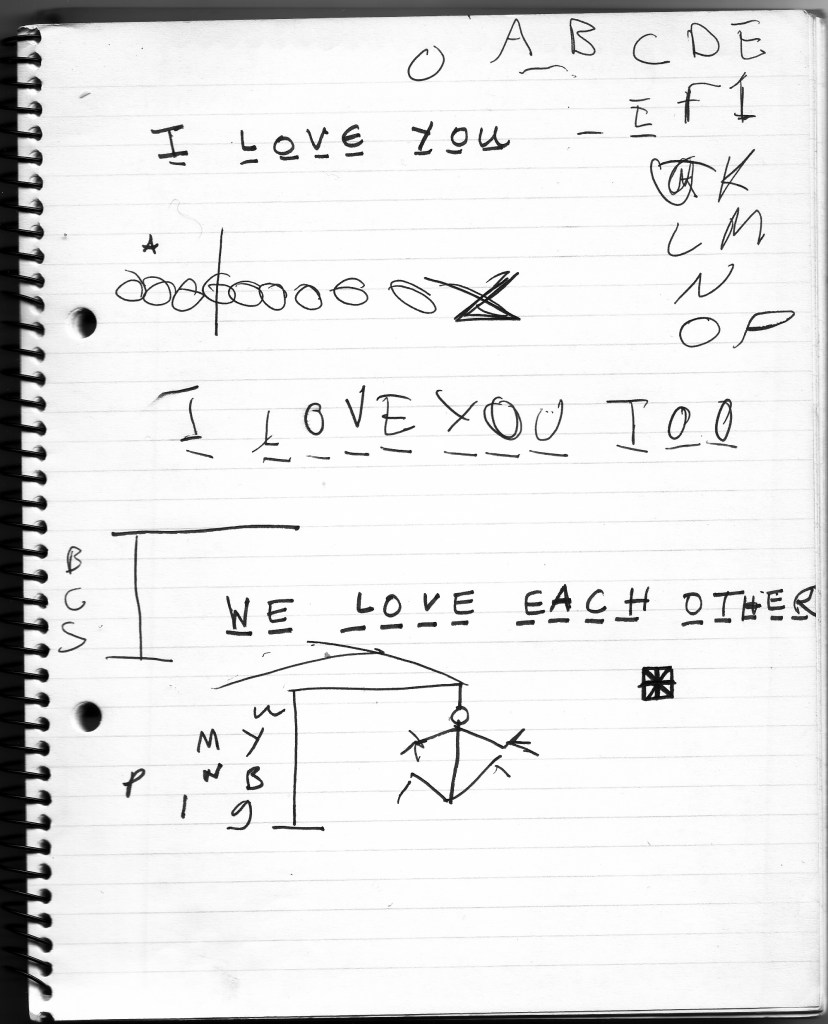 O A B C D E
I LOVE YOU E F I
K
L M
A
N
O P
I LOVE YOU TOO
B
C
S
WE LOVE EACH OTHER
u
M Y
P N B
I g